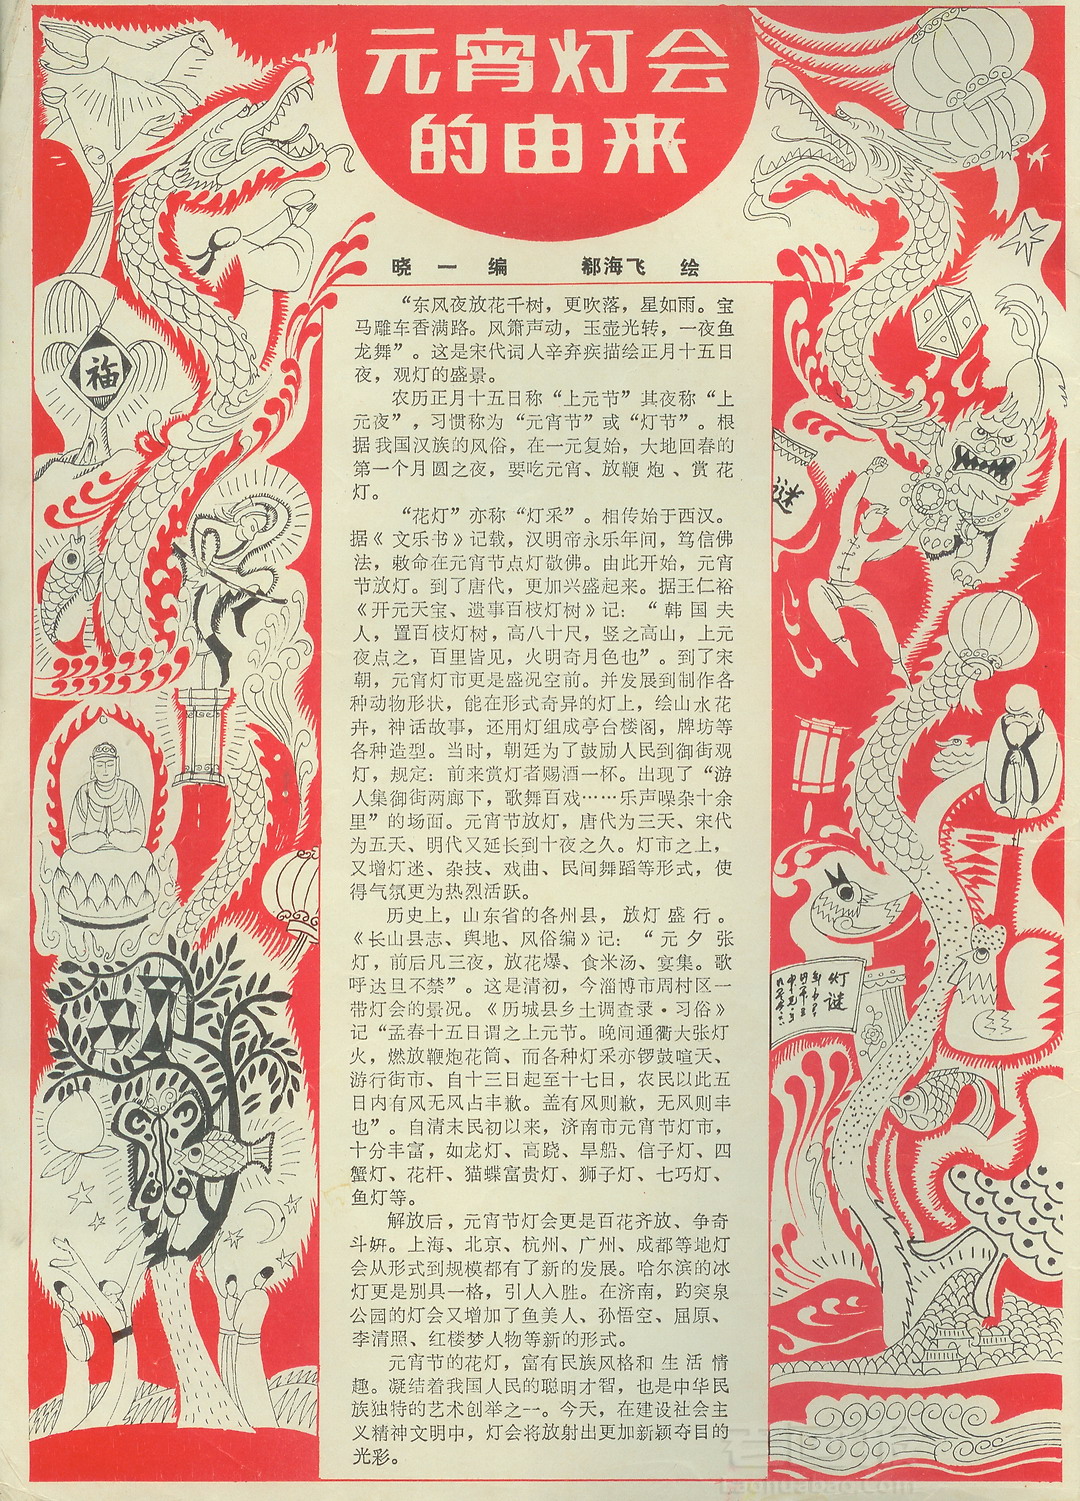 元宵灯会
的由来
晓一编 郗海飞 绘
“东风夜放花千树，更吹落，星如雨。宝
马雕车香满路。风箫声动，玉壶光转，一夜鱼
龙舞”。这是宋代词人辛弃疾描绘正月十五日
夜，观灯的盛景。
农历正月十五日称“上元节”其夜称“上
元夜”，习惯称为“元宵节”或“灯节”。根
据我国汉族的风俗，在一元复始，大地回春的
第一个月圆之夜，要吃元宵、放鞭炮、赏花
灯。
“花灯”亦称“灯采”。相传始于西汉。
据《文乐书》记载，汉明帝永乐年间，笃信佛
法，敕命在元宵节点灯敬佛。由此开始，元宵
节放灯。到了唐代，更加兴盛起来。据王仁裕
《开元天宝、遗事百枝灯树》记：“韩国夫
人，置百枝灯树，高八十尺，竖之高山，上元
夜点之，百里皆见，火明奇月色也”。到了宋
朝，元宵灯市更是盛况空前。并发展到制作各
种动物形状，能在形式奇异的灯上，绘山水花
卉，神话故事，还用灯组成亭台楼阁，牌坊等
各种造型。当时，朝廷为了鼓励人民到御街观
灯，规定：前来赏灯者赐酒一杯。出现了“游
人集御街两廊下，歌舞百戏……乐声噪杂十余
里”的场面。元宵节放灯，唐代为三天、宋代
为五天、明代又延长到十夜之久。灯市之上，
又增灯迷、杂技、戏曲、民间舞蹈等形式，使
得气氛更为热烈活跃。
历史上，山东省的各州县，放灯盛行。
《长山县志、舆地、风俗编》记：“元夕张
灯，前后凡三夜，放花爆、食米汤、宴集。歌
呼达旦不禁”。这是清初，今淄博市周村区一
带灯会的景况。《历城县乡土调查录·习俗》
记“孟春十五日谓之上元节。晚间通衢大张灯
火，燃放鞭炮花筒、而各种灯采亦锣鼓喧天、
游行街市、自十三日起至十七日，农民以此五
日内有风无风占丰歉。盖有风则歉，无风则丰
也”。自清末民初以来，济南市元宵节灯市，
十分丰富，如龙灯、高跷、旱船、信子灯、四
蟹灯、花杆、猫蝶富贵灯、狮子灯、七巧灯、
鱼灯等。
解放后，元宵节灯会更是百花齐放、争奇
斗妍。上海、北京、杭州、广州、成都等地灯
会从形式到规模都有了新的发展。哈尔滨的冰
灯更是别具一格，引人入胜。在济南，趵突泉
公园的灯会又增加了鱼美人、孙悟空、屈原、
李清照、红楼梦人物等新的形式。
元宵节的花灯，富有民族风格和生活情
趣。凝结着我国人民的聪明才智，也是中华民
族独特的艺术创举之一。今天，在建设社会主
义精神文明中，灯会将放射出更加新颖夺目的
光彩。
福
谜
灯谜
laohuabao.com